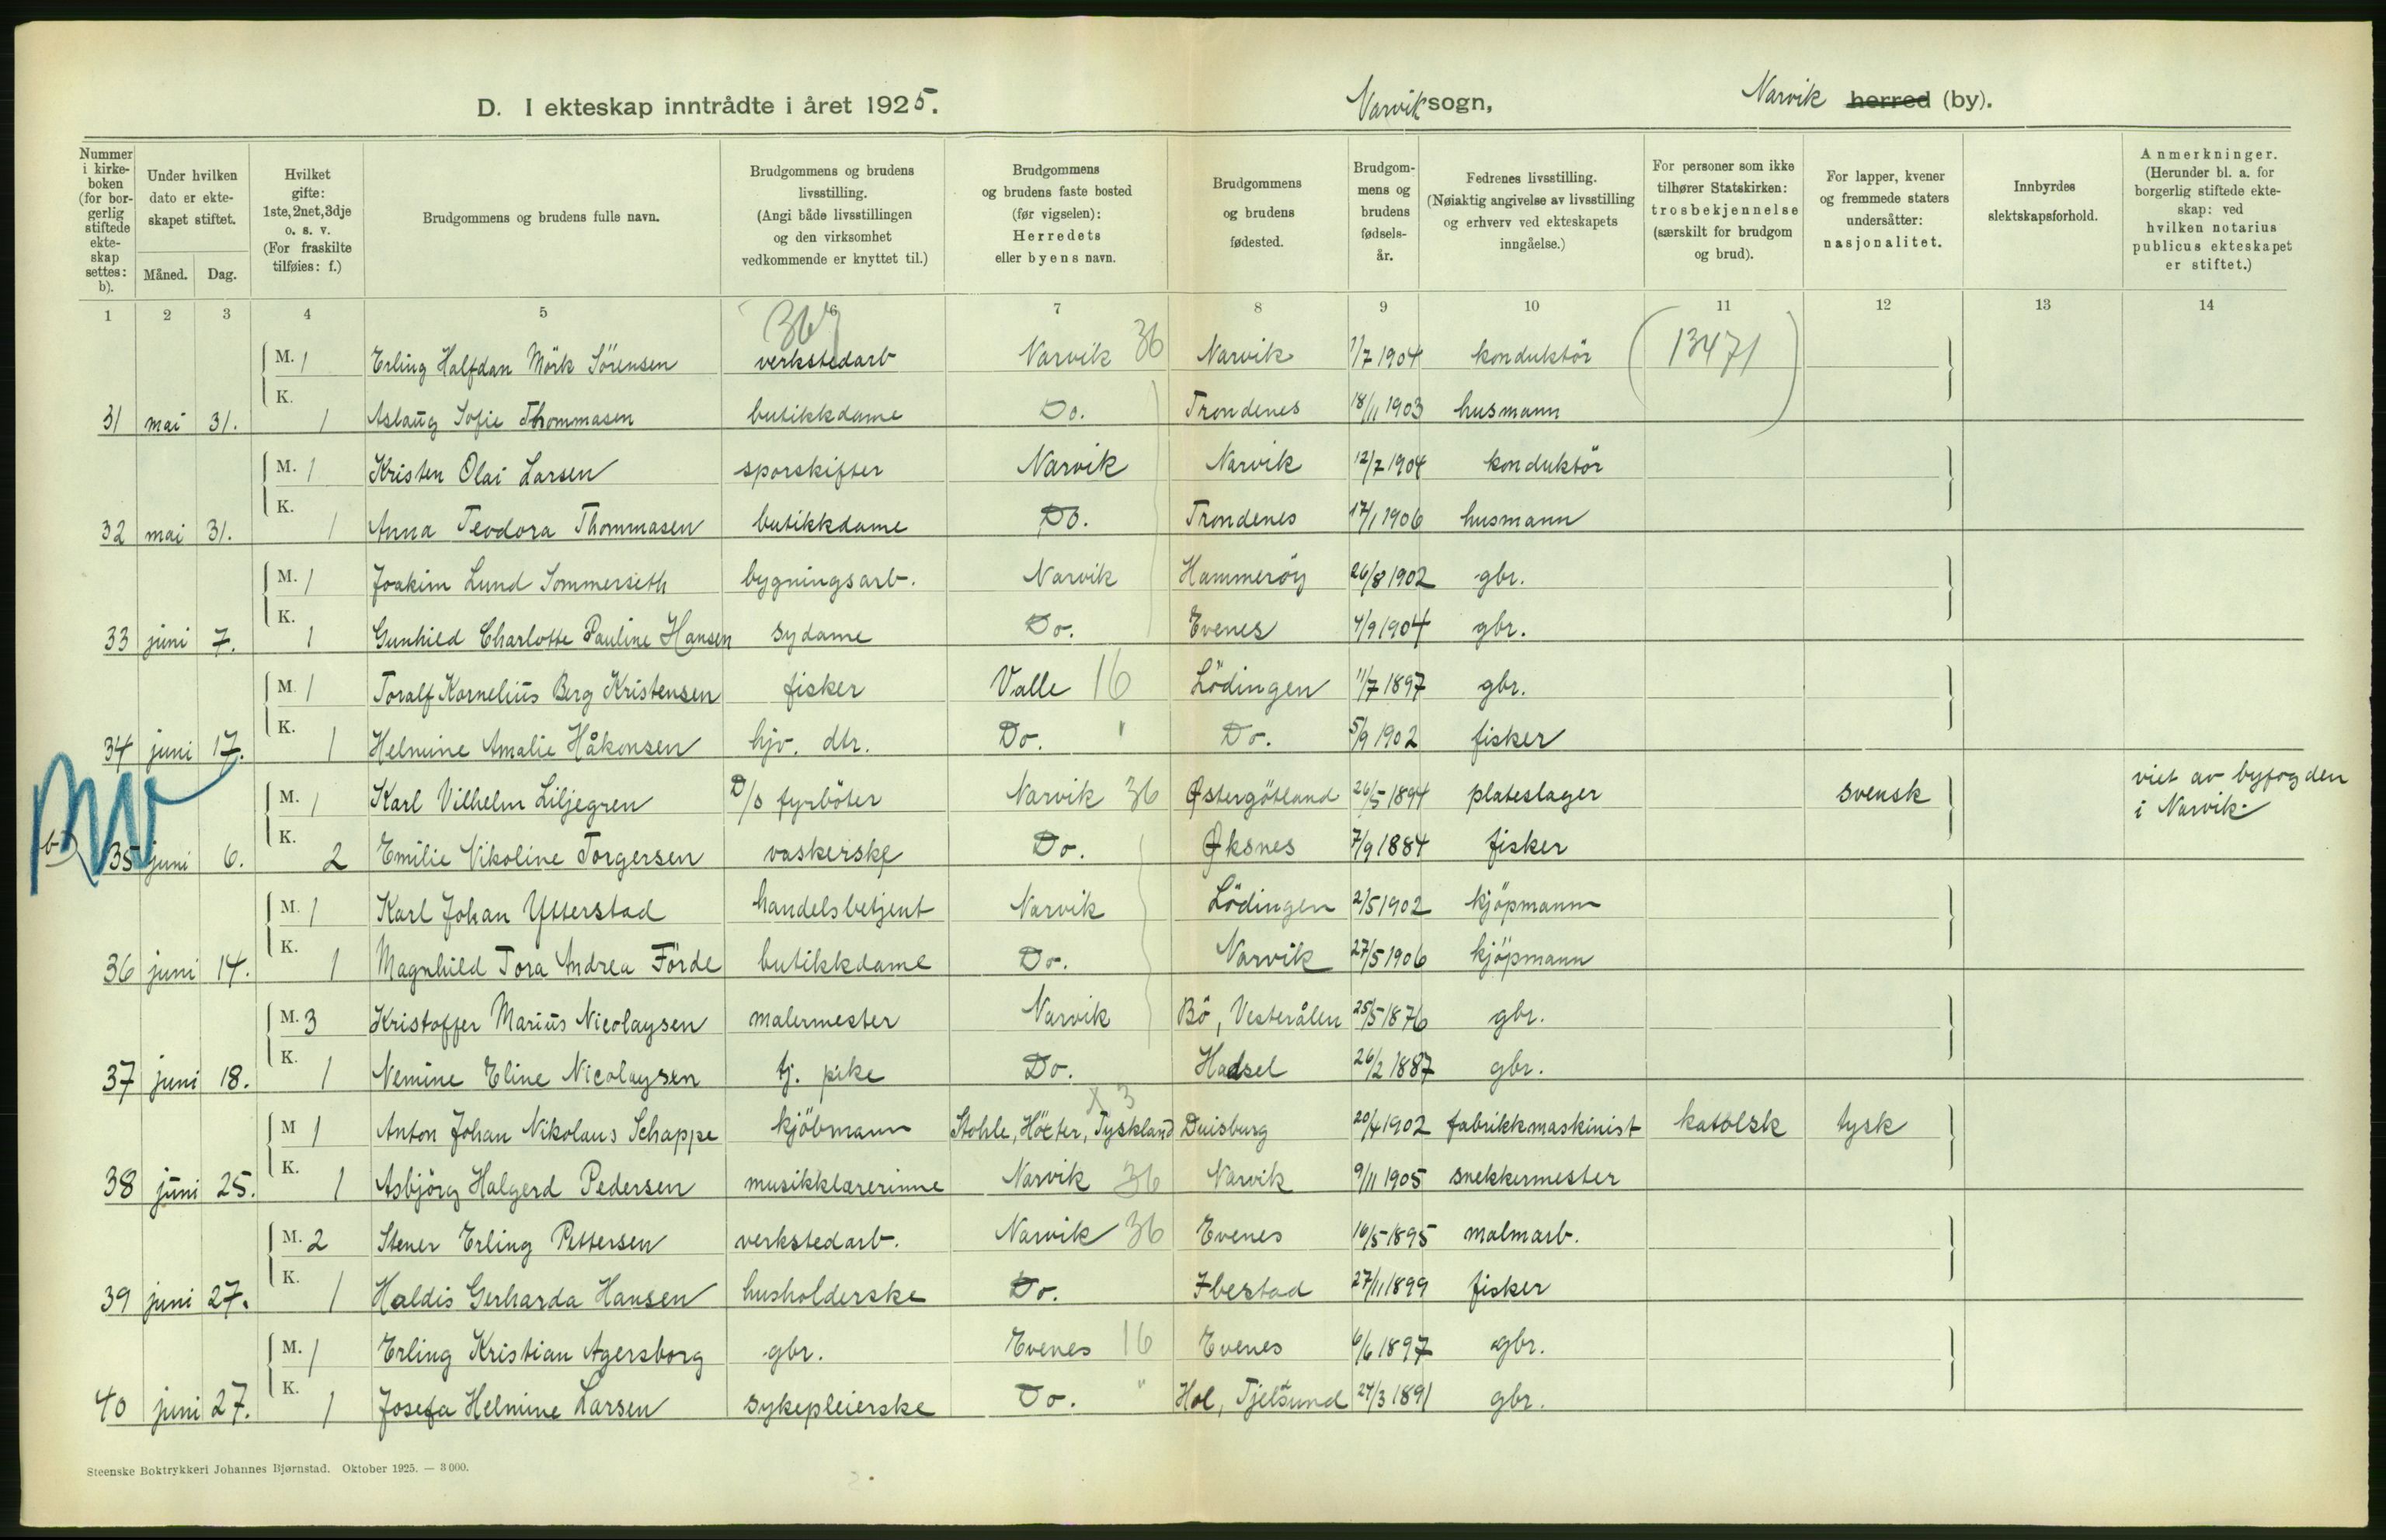 D. I ekteskap inntrådte i året 1925. Narvik sogn, Narvik herred (by).
Nummer i kirkeboken (for borgerlig stiftede ekteskap settes: b).
Under hvilken dato er ekteskapet stiftet.
Måned. Dag.
Hvilket gifte: 1ste, 2net, 3dje o. s. v. (For fraskilte tilføies: f.)
Brudgommens og brudens fulle navn.
Brudgommens og brudens livsstilling. (Angi både livsstillingen og den virksomhet vedkommende er knyttet til.)
Brudgommens og brudens faste bosted (før vigselen): Herredets eller byens navn.
Brudgommens og brudens fødested.
Brudgommens og brudens fødselsår.
Fedrenes livsstilling. (Nøiaktig angivelse av livsstilling og erhverv ved ekteskapets inngåelse.)
For personer som ikke tilhører Statskirken: trosbekjennelse (særskilt for brudgom og brud).
For lapper, kvener og fremmede staters undersåtter: nasjonalitet.
Innbyrdes slektskapsforhold.
Anmerkninger. (Herunder bl. a. for borgerlig stiftede ekteskap: ved hvilken notarius publicus ekteskapet er stiftet.)
1 2 3 4 5 6 7 8 9 10 11 12 13 14
M. 1 Erling Halfdan Mörk Sörensen verkstedarb Narvik 36 Narvik 1/7 1904 konduktör (13471)
31 mai 31. K. 1 Aslaug Sofie Thommasen butikkdame Do. Trondenes 18/11 1903 husmann
M. 1 Kristen Olai Larsen sporskifter Narvik Narvik 12/7 1904 konduktör
32 mai 31. K. 1 Anna Teodora Thommasen butikkdame Do. Trondenes 17/1 1906 husmann
M. 1 Joakim Lund Sommerseth bygningsarb. Narvik Hammeröy 26/8 1902 gbr.
33 juni 7. K. 1 Gunhild Charlotte Pauline Hansen sydame Do. Evenes 4/9 1904 gbr.
M. 1 Toralf Kornelius Berg Kristensen fisker Valle 16 Lödingen 11/7 1897 gbr.
34 juni 17. K. 1 Helmine Amalie Håkonsen hjv. dtr. Do. " Do. 5/9 1902 fisker
M. 1 Karl Vilhelm Liljegren D/s fyrböter Narvik 36 Østergötland 26/5 1894 plateslager svensk viet av byfogden i Narvik.
b) 35 juni 6. K. 2 Emilie Nikoline Torgersen vaskerske Do. Øksnes 7/9 1884 fisker
M. 1 Karl Johan Ytterstad handelsbetjent Narvik Lödingen 2/5 1902 kjöpmann
36 juni 14. K. 1 Magnhild Tora Andrea Förde butikkdame Do. Narvik 27/5 1906 kjöpmann
M. 3 Kristoffer Marius Nicolaysen malermester Narvik Bö, Vesterålen 25/5 1876 gbr.
37 juni 18. K. 1 Nemine Eline Nicolaysen tj. pike Do. Hadsel 26/2 1887 gbr.
x 3
M 1 Anton Johan Nikolaus Schappe kjöbmann Stahle, Höxter, Tyskland Duisburg 20/4 1902 fabrikkmaskinist katolsk tysk
38 juni 25. K. 1 Asbjörg Halgerd Pedersen musikklærerinne Narvik 36 Narvik 9/11 1905 snekkermester
M. 2 Stener Erling Pettersen verkstedarb. Narvik 36 Evenes 16/5 1895 malmarb.
39 juni 27. K. 1 Haldis Gerharda Hansen husholderske Do. Ibestad 27/11 1899 fisker
M. 1 Erling Kristian Agersborg gbr. Evenes 16 Evenes 6/6 1897 gbr.
40 juni 27. K. 1 Josefa Helmine Larsen sykepleierske Do. " Hol, Tjeldsund 24/3 1891 gbr.
Steenske Boktrykkeri Johannes Bjørnstad. Oktober 1925. — 3000.